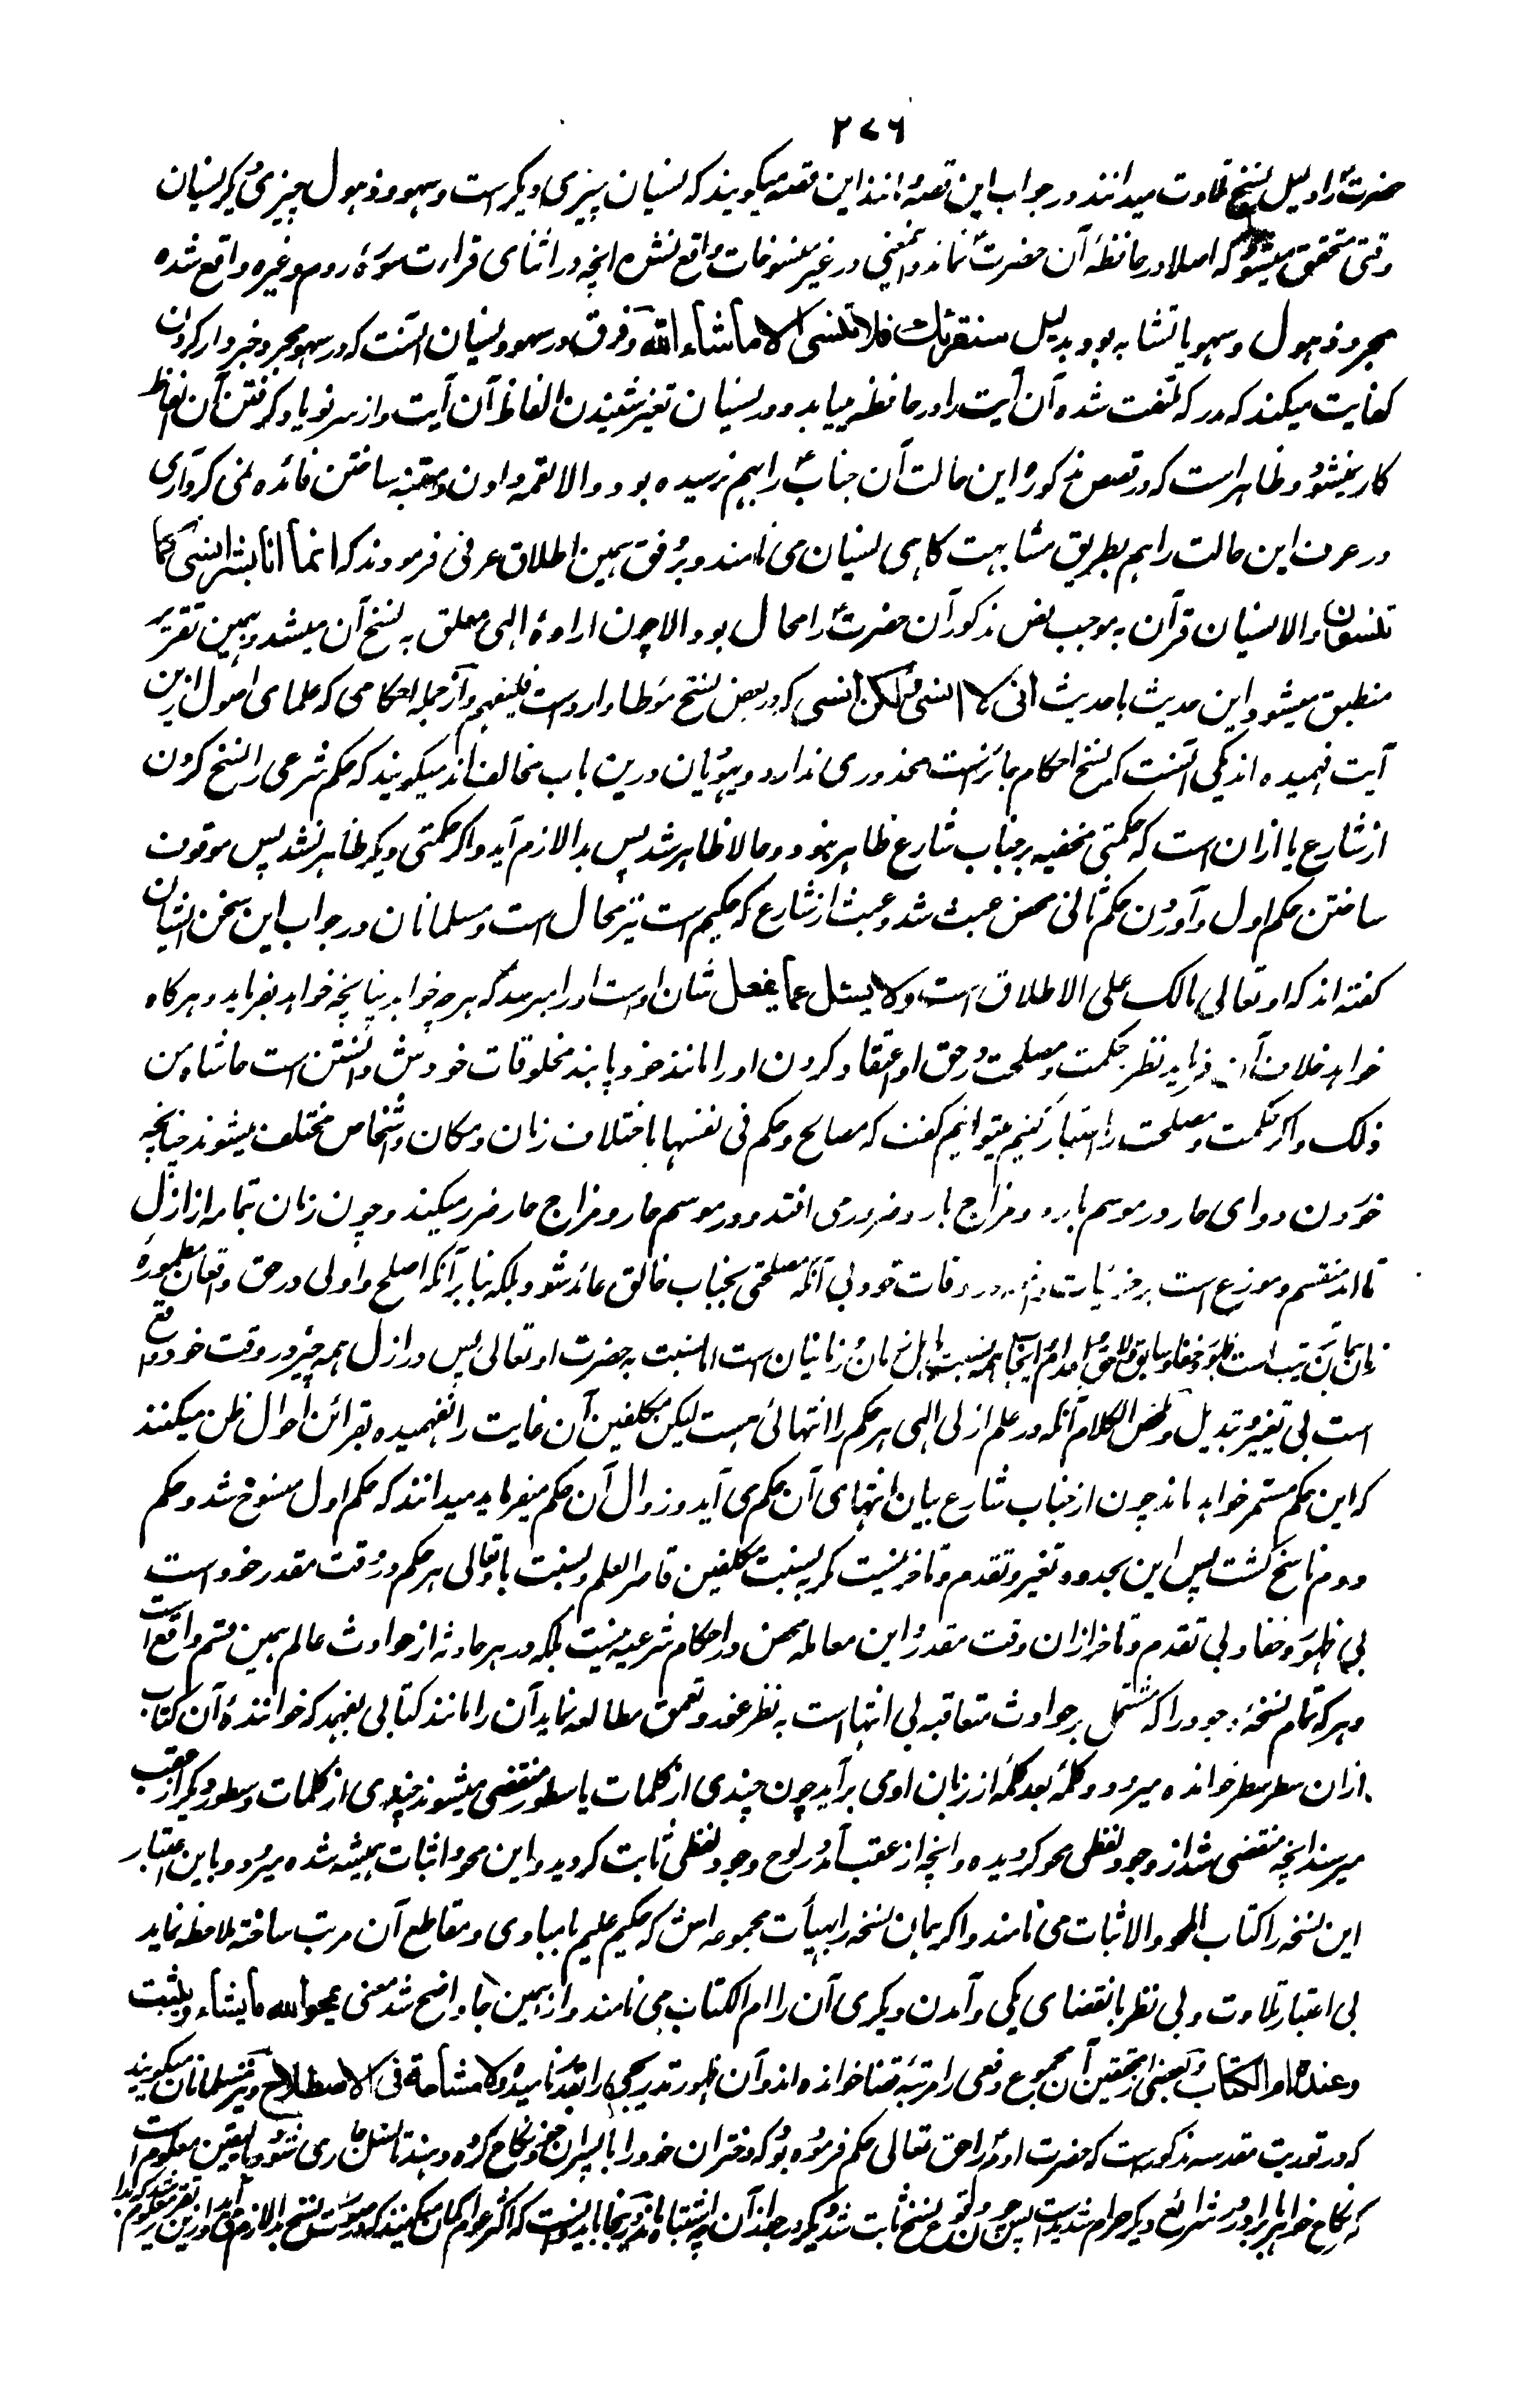 ۲۷۶
حضرتؐ را دلیل نسخ تلاوت میدانند و در جواب این قصه و مانند این قصه میگویند که نسیان چیزی دیگر است و سهو و ذهول چیزی دیگر نسیان
وقتی متحقق میشود که اصلا در حافظهٔ آن حضرتؐ نماند و اینمعنی در غیر منسوخات واقع نشده انچه در اثنای قراءت سورهٔ روم و غیره واقع شده
مجرد ذهول و سهو یا تشابه بود بدلیل سنقرئك فلا تنسی الا ما شاء الله و فرق در سهو و نسیان آنست که در سهو مجرد خبردار کردن
کفایت میکند که مدرکه ملتفت شده آن آیت را در حافظه مییابد و در نسیان بغیر شنیدن الفاظ آن آیت و از سر نو یاد گرفتن آن الفاظ
کار نمیشود و ظاهر است که در قصص مذکوره این حالت آن جنابؐ را بهم نرسیده بود و الا لقمه دادن و متنبه ساختن فائده نمی کرد آری
در عرف این حالت را هم بطریق مشابهت گاهی نسیان می نامند و بر وفق همین اطلاق عرفی فرمودند که انما انا بشر انسی كما
تنسون و الا نسیان قرآن به موجب نص مذکور آن حضرتؐ را محال بود الا چون ارادهٔ الهی معلق به نسخ آن میشد و بهمین تقریر
منطبق میشود این حدیث با حدیث انی لا انسی ولكن انسی که در بعض نسخ موطا وارد است فلیفهم و از جمله احکامی که علمای اصول ازین
آیت فهمیده اند یکی آنست که نسخ احکام جائز است محذوری ندارد و یهودیان درین باب مخالف اند میگویند که حکم شرعی را نسخ کردن
از شارع یا ازان است که حکمتی مخفیه بر جناب شارع ظاهر نبود و حالا ظاهر شد پس بدا لازم آید و اگر حکمتی دیگر ظاهر نشد پس موقوف
ساختن حکم اول و آوردن حکم ثانی محض عبث شد و عبث از شارع که حکیم است نیز محال است و مسلمانان در جواب این سخن ایشان
گفته اند که او تعالی مالک علی الاطلاق است و لا یسئل عما یفعل شان اوست او را میرسد که هر چه خواهد چنانچه خواهد بفرماید و هرگاه
خواهد خلاف آن فرماید نظر بحکمت و مصلحت در حق او اعتقاد کردن او را مانند خود پابند مخلوقات خودش دانستن است حاشاه من
ذلک و اگر حکمت و مصلحت را اعتبار کنیم میتوانیم گفت که مصالح و حکم فی نفسها باختلاف زمان و مکان و اشخاص مختلف میشوند چنانچه
خوردن دوای حار در موسم بارد و مزاج بارد ضرور می افتد و در موسم حار و مزاج حار ضرر میکند و چون زمان بتمامه از ازل
تا ابد منقسم و موزع است بر جزئیات اوقات خود بی آنکه مصلحتی بجناب خالق عائد شود بلکه بنابر آنکه اصلح و اولی در حق واقعان مطمورهٔ
زمان همان ترتیب است ظهور و خفا و سابق و لاحق اینجا همه نسبت باهل زمان و زمانیان است اما نسبت به حضرت او تعالی پس در ازل همه چیز در وقت خود واقع
است بی تغییر و تبدیل و ملخص الکلام آنکه در علم ازلی الهی هر حکم را انتهائی هست لیکن مکلفین آن غایت را نفهمیده بقرائن احوال ظن میکنند
که این حکم مستمر خواهد ماند چون از جناب شارع بیان انتهای آن حکم می آید و زوال آن حکم میفرماید میدانند که حکم اول منسوخ شد و حکم
دوم ناسخ گشت پس این تجدد و تغیر و تقدم و تاخر نیست مگر به نسبت مکلفین قاصر العلم و بنسبت باو تعالی هر حکم در وقت مقدر خود است
بی ظهور و خفا و بی تقدم و تاخر ازان وقت مقدر و این معامله محض در احکام شرعیه نیست بلکه در هر حادثه از حوادث عالم بهمین قسم واقع است
و هر که تمام نسخهٔ وجود را که مشتمل بر حوادث متعاقبه بی انتها است به نظر غور و تعمق مطالعه نماید آن را مانند کتابی بفهمد که خوانندهٔ آن کتاب
ازان سطر سطر خوانده میرود و کلمهٔ بعد کلمه از زبان او می برآید چون چندی از کلمات یا سطور منقضی میشوند چندی از کلمات و سطور دیگر از عقب
میرسند انچه منقضی شد از وجود لفظی محو گردیده و انچه از عقب آمد در لوح وجود لفظی ثابت گردید و این محو و اثبات همیشه شده میرود و باین اعتبار
این نسخه را کتاب المحو و الاثبات می نامند و اگر همان نسخه را بهیأت مجموعه اش که حکیم علیم با مبادی و مقاطع آن مرتب ساخته ملاحظه نماید
بی اعتبار تلاوت و بی نظر بانقضای یکی و آمدن دیگری آن را ام الکتاب می نامند و از همین جا واضح شد معنی یمحو الله ما یشاء و یثبت
و عنده ام الكتاب و بعضی از محققین آن مجموع دفعی را مرتبهٔ قضا خوانده اند و آن ظهور تدریجی را بقدر نامیده و لا مشاحة فی الاصطلاح و نیز مسلمانان میگویند
که در توریت مقدسه مذکور است که حضرت آدمؑ را حق تعالی حکم فرموده بود که دختران خود را با پسران خود نکاح کرده دهند تا نسل جاری شود و بالیقین معلوم است
که نکاح خواهر با برادر در شرائع دیگر حرام شده است پس چون وقوع نسخ ثابت شد دیگر در جواز آن چه اشتباه ماند و درینجا باید دانست که اکثر عوام گمان میکنند که در صورت نسخ بدا لازم می آید و ازین تقریر معلوم شد که بدا